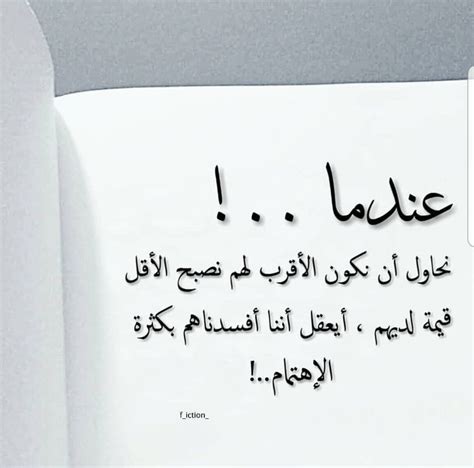 عندما ...!
نحاول أن نكون الأقرب لهم نصبح الأقل
قيمة لديهم ، أيعقل أننا أفسدناهم بكثرة
الإهتمام..!
f_iction_